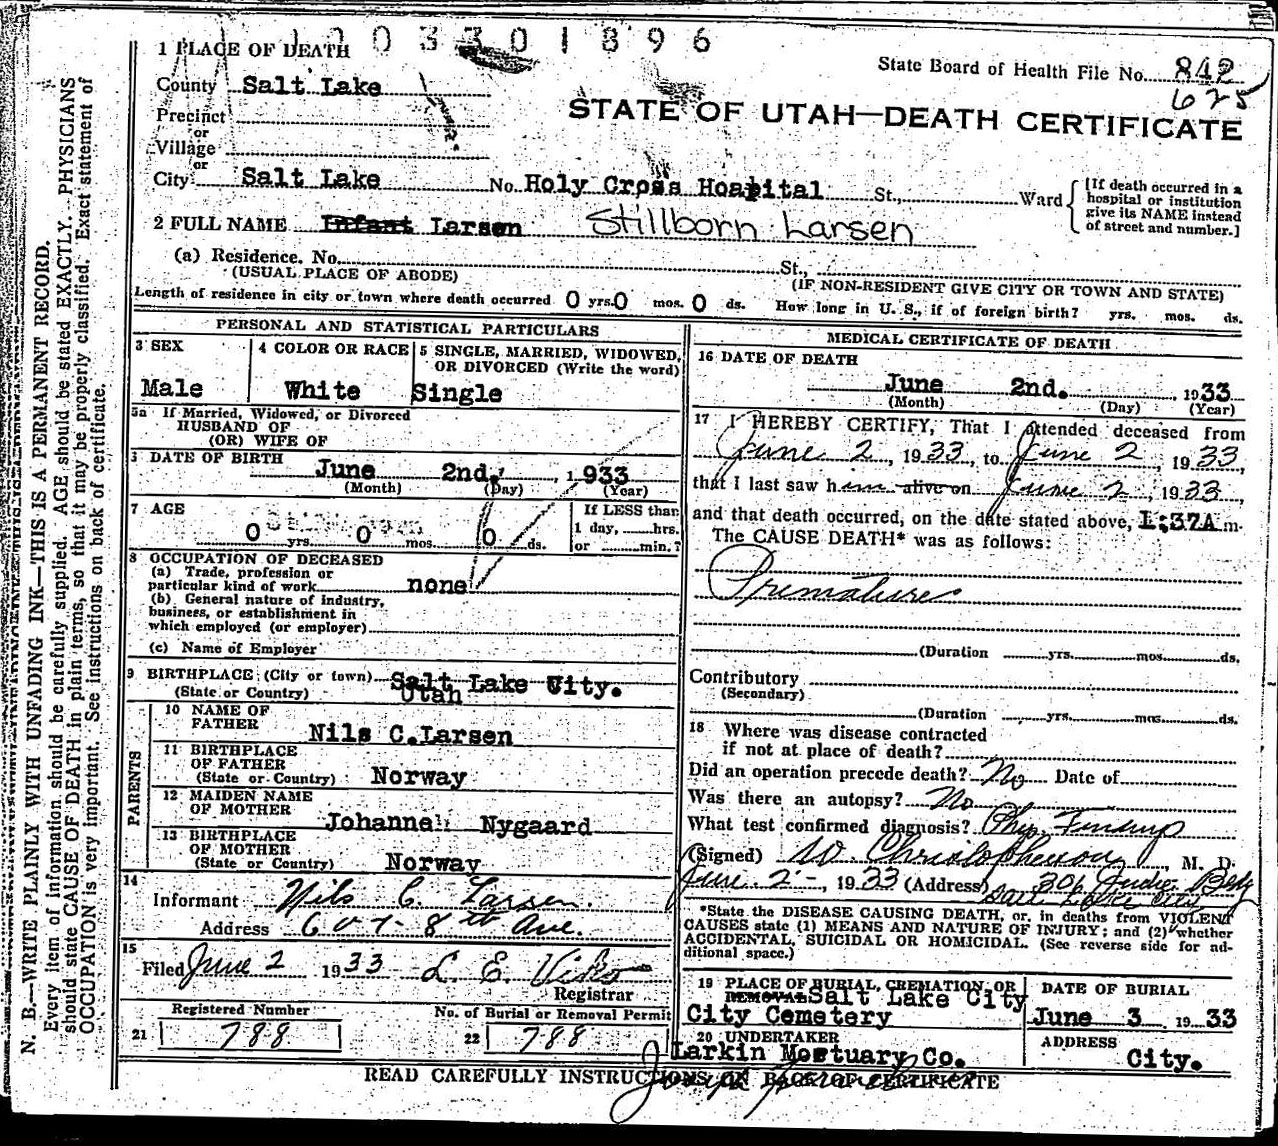 0 0 3 3 0 1 8 9 6
1 PLACE OF DEATH
State Board of Health File No. 842
625
County Salt Lake
STATE OF UTAH—DEATH CERTIFICATE
Precinct
or
Village
or
City Salt Lake No. Holy Cross Hospital St., Ward [If death occurred in a hospital or institution give its NAME instead of street and number.]
2 FULL NAME Infant Larsen Stillborn Larsen
(a) Residence. No. St.,
(USUAL PLACE OF ABODE) (IF NON-RESIDENT GIVE CITY OR TOWN AND STATE)
Length of residence in city or town where death occurred 0 yrs. 0 mos. 0 ds. How long in U. S., if of foreign birth? yrs. mos. ds.
PERSONAL AND STATISTICAL PARTICULARS
3 SEX 4 COLOR OR RACE 5 SINGLE, MARRIED, WIDOWED,
OR DIVORCED (Write the word)
Male White Single
5a If Married, Widowed, or Divorced
HUSBAND OF
(OR) WIFE OF
DATE OF BIRTH
June 2nd. , 1933
(Month) (Day) (Year)
7 AGE If LESS than
0 yrs. 0 mos. 0 ds. 1 day, hrs.
or min.?
8 OCCUPATION OF DECEASED
(a) Trade, profession or
particular kind of work none
(b) General nature of industry,
business, or establishment in
which employed (or employer)
(c) Name of Employer
9 BIRTHPLACE (City or town) Salt Lake City.
(State or Country) Utah
PARENTS
10 NAME OF
FATHER Nils C. Larsen
11 BIRTHPLACE
OF FATHER
(State or Country) Norway
12 MAIDEN NAME
OF MOTHER Johanne Nygaard
13 BIRTHPLACE
OF MOTHER
(State or Country) Norway
14
Informant Nils C. Larsen.
Address 607-8th Ave.
15
Filed June 2 1933 L. E. Viko
Registrar
Registered Number No. of Burial or Removal Permit
21 788 22 788
MEDICAL CERTIFICATE OF DEATH
16 DATE OF DEATH
June 2nd. , 1933
(Month) (Day) (Year)
17 I HEREBY CERTIFY, That I attended deceased from
June 2, 1933, to June 2, 1933
that I last saw him alive on June 2, 1933,
and that death occurred, on the date stated above, 1;37A m.
The CAUSE DEATH* was as follows:
Premature
(Duration yrs. mos. ds.
Contributory
(Secondary)
(Duration yrs. mos. ds.
18 Where was disease contracted
if not at place of death?
Did an operation precede death? No Date of
Was there an autopsy? No
What test confirmed diagnosis? Phys. Findings
(Signed) W. Christopherson, M. D.
June 2-, 1933 (Address) 306 Judge Bldg
Salt Lake City
*State the DISEASE CAUSING DEATH, or, in deaths from VIOLENT
CAUSES state (1) MEANS AND NATURE OF INJURY; and (2) whether
ACCIDENTAL, SUICIDAL OR HOMICIDAL. (See reverse side for ad-
ditional space.)
19 PLACE OF BURIAL, CREMATION, OR DATE OF BURIAL
REMOVAL Salt Lake City
City Cemetery June 3 1933
20 UNDERTAKER ADDRESS
Larkin Mortuary Co. City.
READ CAREFULLY INSTRUCTIONS ON BACK OF CERTIFICATE
N. B.—WRITE PLAINLY WITH UNFADING INK—THIS IS A PERMANENT RECORD.
Every item of information should be carefully supplied. AGE should be stated EXACTLY. PHYSICIANS
should state CAUSE OF DEATH in plain terms, so that it may be properly classified. Exact statement of
OCCUPATION is very important. See instructions on back of certificate.